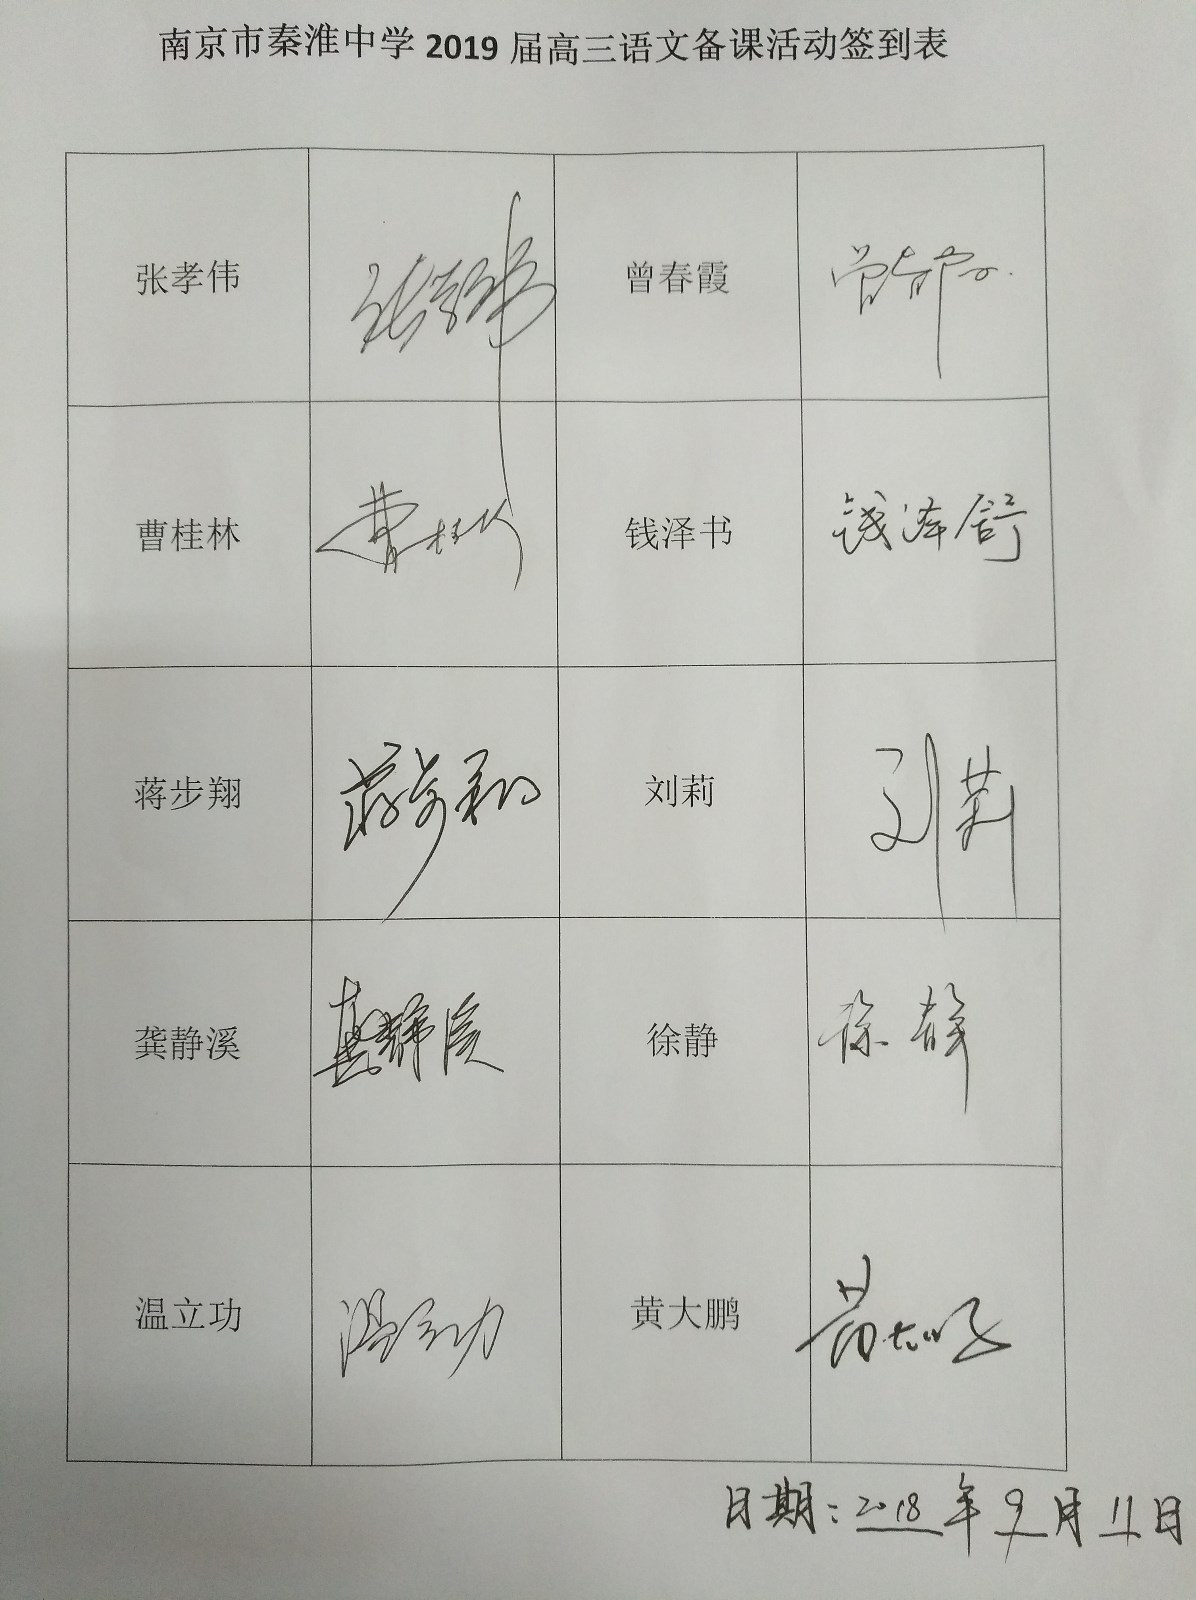 南京市秦淮中学 2019 届高三语文备课活动签到表
张孝伟 张孝伟 曾春霞
曹桂林 曹桂林 钱泽书 钱泽舒
蒋步翔 蒋步翔 刘莉 刘莉
龚静溪 龚静溪 徐静 徐静
温立功 温立功 黄大鹏 黄大鹏
日期：2018年9月11日